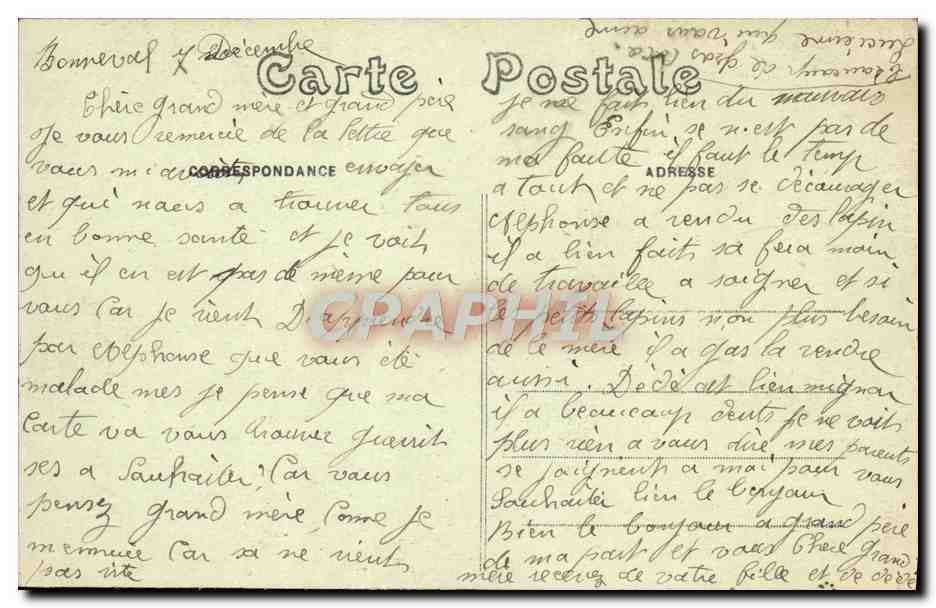 Bonneval 7 Décembre
Carte Postale
CORRESPONDANCE
ADRESSE
Chère grand mère et grand père
Je vous remercie de la lettre que
vous m'avités envoyer
et qui nous a trouver tous
en bonne santé et je voit
qu il en est pas de même pour
vous Car je vient D'apprendre
par Alphonse que vous été
malade mes je pense que ma
Carte va vous trouver guerrit
ses a Souhaiter Car vous
pensez grand mère Come je
m ennuie Car sa ne vient
pas vite
je me fait bien du mauvais
sang Enfin se n'est pas de
ma faute il faut le temp
a tout et ne pas se décourager
Alphonse a rendu des lapin
il a bien fait sa fera moin
de travaille a soigner et si
le petits lapins n'on plus besoin
de le mère il a qas la vendre
aussi. Dédé est bien mignon
il a beaucoup dents je ne voit
plus rien a vous dire mes parents
se joignent a moi pour vous
Souhaiter bien le bonjour
Bien le bonjour a grand père
de ma part et vous Chère grand
mère recevez de votre fille et de dédé
Beaucoup de gros
Lucienne qui vous aime
CPAPHIL